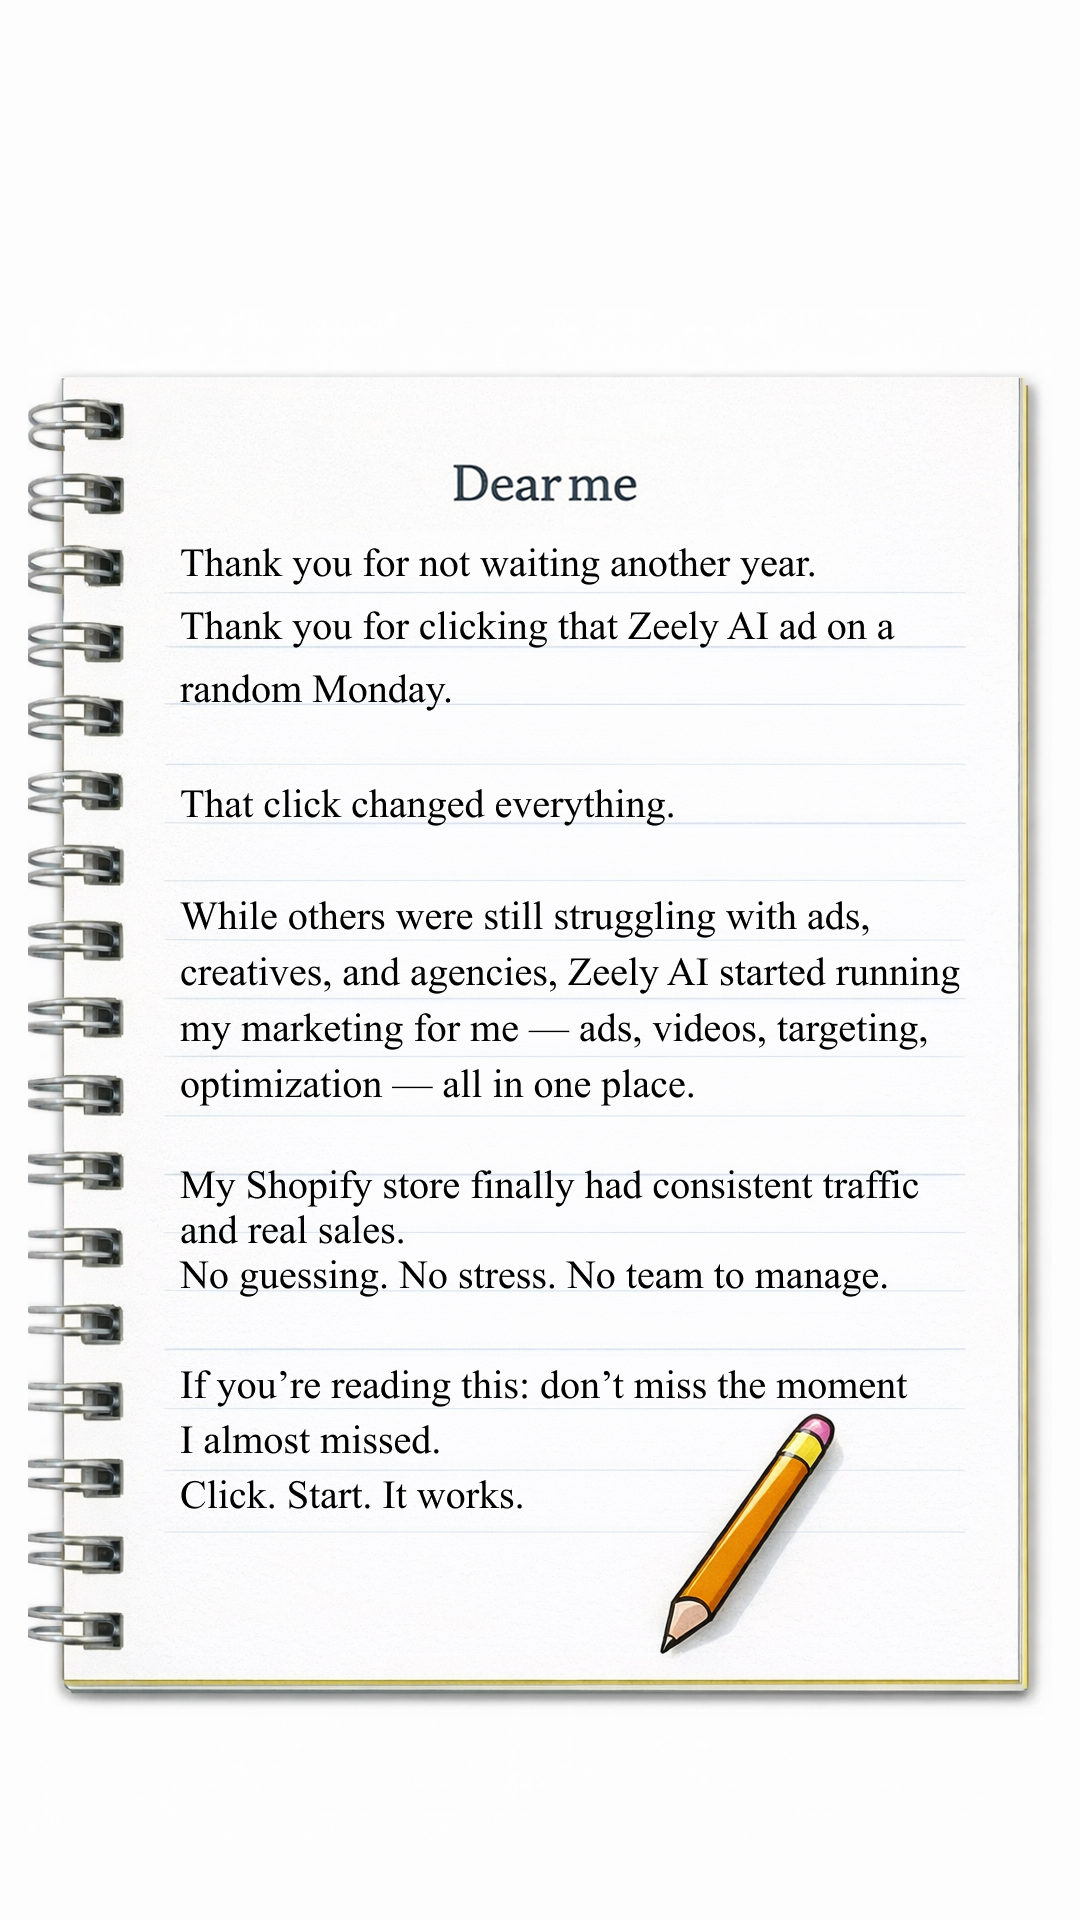 Dear me
Thank you for not waiting another year.
Thank you for clicking that Zeely AI ad on a
random Monday.
That click changed everything.
While others were still struggling with ads,
creatives, and agencies, Zeely AI started running
my marketing for me — ads, videos, targeting,
optimization — all in one place.
My Shopify store finally had consistent traffic
and real sales.
No guessing. No stress. No team to manage.
If you’re reading this: don’t miss the moment
I almost missed.
Click. Start. It works.